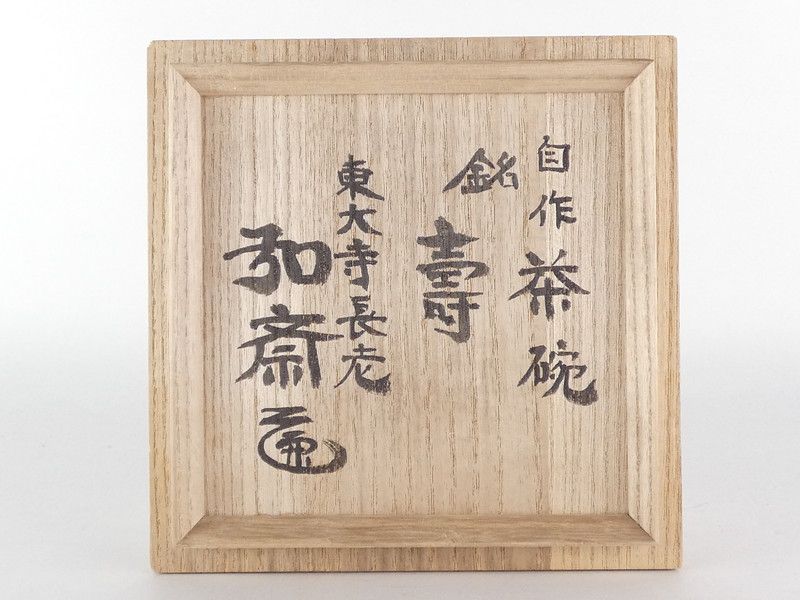 自作茶碗
銘
壽
東大寺長老
弘斎